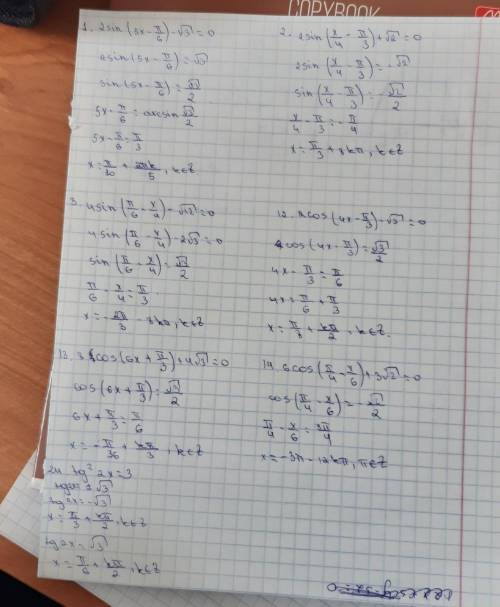 COPYBOOK
1. 2sin(5x - π/6) - √3 = 0
2sin(5x - π/6) = √3
sin(5x - π/6) = √3/2
5x - π/6 = arcsin √3/2
5x - π/6 = π/3
x = π/10 + 2πk/5, k∈Z
2. 2sin(x/4 - π/3) + √2 = 0
2sin(x/4 - π/3) = -√2
sin(x/4 - π/3) = -√2/2
x/4 - π/3 = -π/4
x = π/3 + 8kπ, k∈Z
3. 4sin(π/6 - x/4) - √12 = 0
4sin(π/6 - x/4) - 2√3 = 0
sin(π/6 - x/4) = √3/2
π/6 - x/4 = π/3
x = -2π/3 - 8kπ, k∈Z
12. 2cos(4x - π/3) - √3 = 0
cos(4x - π/3) = √3/2
4x - π/3 = π/6
4x = π/6 + π/3
x = π/8 + kπ/2, k∈Z
13. 8cos(6x + π/3) + 4√3 = 0
cos(6x + π/3) = √3/2
6x + π/3 = π/6
x = -π/36 + kπ/3, k∈Z
14. 6cos(π/4 - x/6) + 3√2 = 0
cos(π/4 - x/6) = -√2/2
π/4 - x/6 = 3π/4
x = -3π - 12kπ, π∈Z
24 tg² 2x = 3
tg2x = ±√3
tg2x = -√3
x = π/3 + kπ/2, k∈Z
tg2x = √3
x = π/6 + kπ/2, k∈Z